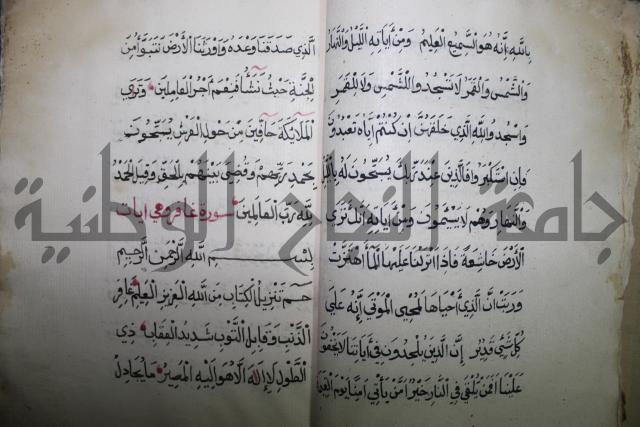 بالله إنه هو السميع العليم ومن آياته الليل والنهار
والشمس والقمر لا تسجدوا للشمس ولا للقمر
واسجدوا لله الذي خلقهن ان كنتم اياه تعبدون
فإن استكبروا فالذين عند ربك يسبحون له بالليل
والنهار وهم لا يسئمون ومن آياته انك ترى
الأرض خاشعة فاذا انزلنا عليها الماء اهتزت
وربت ان الذي احياها لمحيي الموتى إنه على
كل شيء قدير إن الذين يلحدون في آياتنا لا يخفون
علينا افمن يلقى في النار خير امن يأتي امنا يوم القيمة
الذي صدقنا وعده واورثنا الأرض نتبوأ من
الجنة حيث نشاء فنعم أجر العاملين وترى
الملائكة حافين من حول العرش يسبحون
بحمد ربهم وقضى بينهم بالحق وقيل الحمد
لله رب العالمين سورة غافر وهي ايات
بسم الله الرحمن الرحيم
حم تنزيل الكتاب من الله العزيز العليم غافر
الذنب وقابل التوب شديد العقاب ذي
الطول لا إله الا هو إليه المصير ما يجادل
جامعة النجاح الوطنية